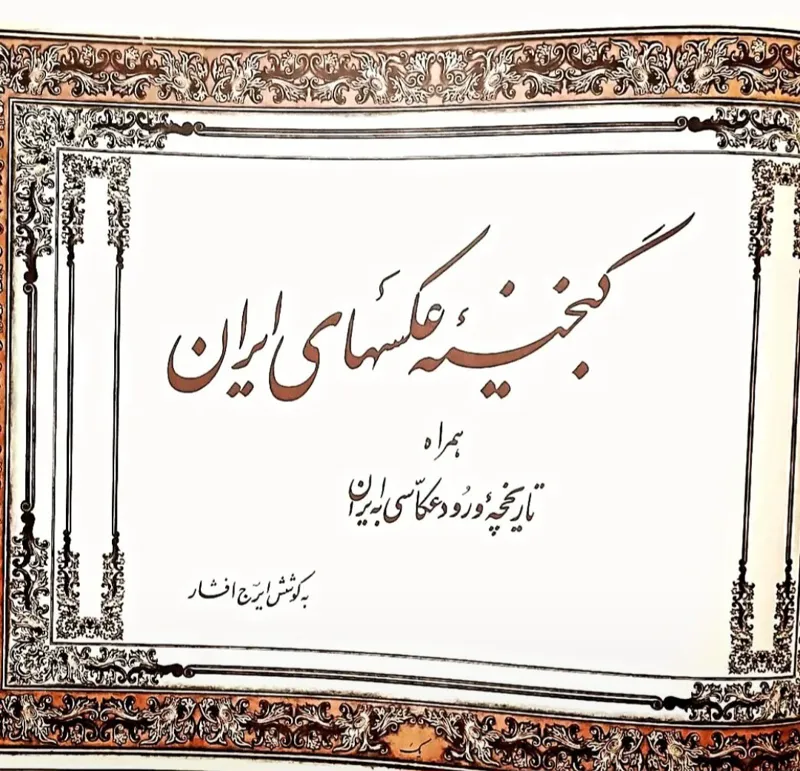 گنجینهٔ عکسهای ایران
همراه
تاریخچهٔ ورود عکاسی به ایران
به کوشش ایرج افشار